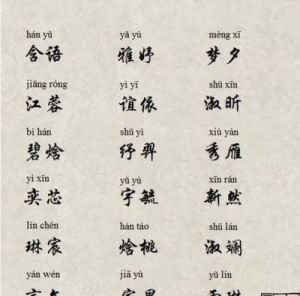 hán yǔ yǎ yú mèng xī
含语 雅妤 梦夕
jiāng róng yì yī shū xīn
江蓉 谊依 淑昕
bì hán shū yì xiù yàn
碧焓 纾羿 秀雁
yì xīn yǔ yù xīn rán
奕芯 宇毓 新然
lín chén hán táo shū lán
琳宸 焓桃 淑谰
yán wén jiā yù yǔ lín